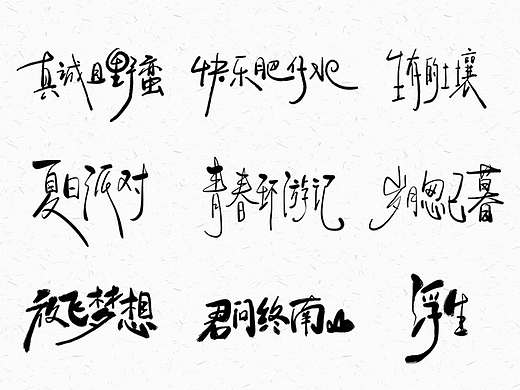 真诚且野蛮
快乐肥仔水
生有的土壤
夏日派对
青春环游记
岁月忽已暮
放飞梦想
君问终南山
浮生